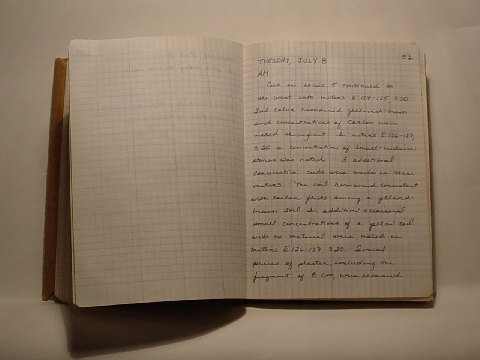 52
TUESDAY, JULY 8
AM
Cut in Locus 5 continued to
the west into meters E.127-125, S.20.
Soil color remained yellowish-brown
and concentrations of carbon were
noted throughout. In meters E.126-127,
S.20 a concentration of small-medium
stones was noted. 3 additional
were made in these
meters. The soil remained consistent
with carbon flecks among a yellowish-
brown soil. In addition occasional
small concentrations of a yellow soil
with no material were noted in
meters E.126-127, S.20. Several
pieces of plaster, including one
fragment of B.C.M, were recovered